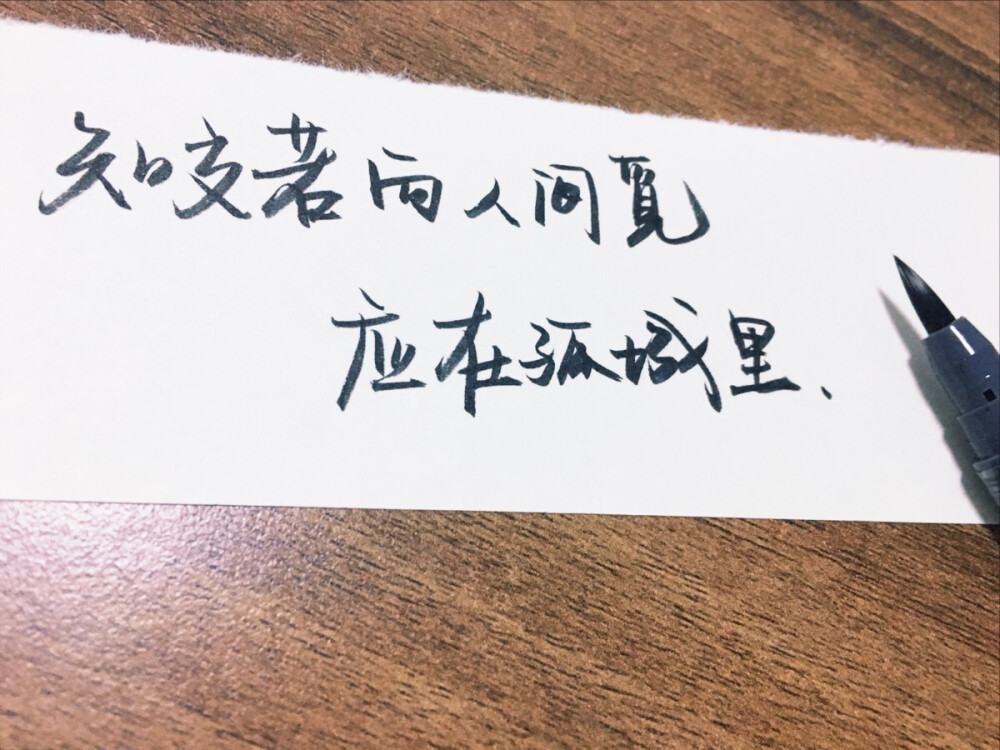 知交若向人间觅
应在孤城里、